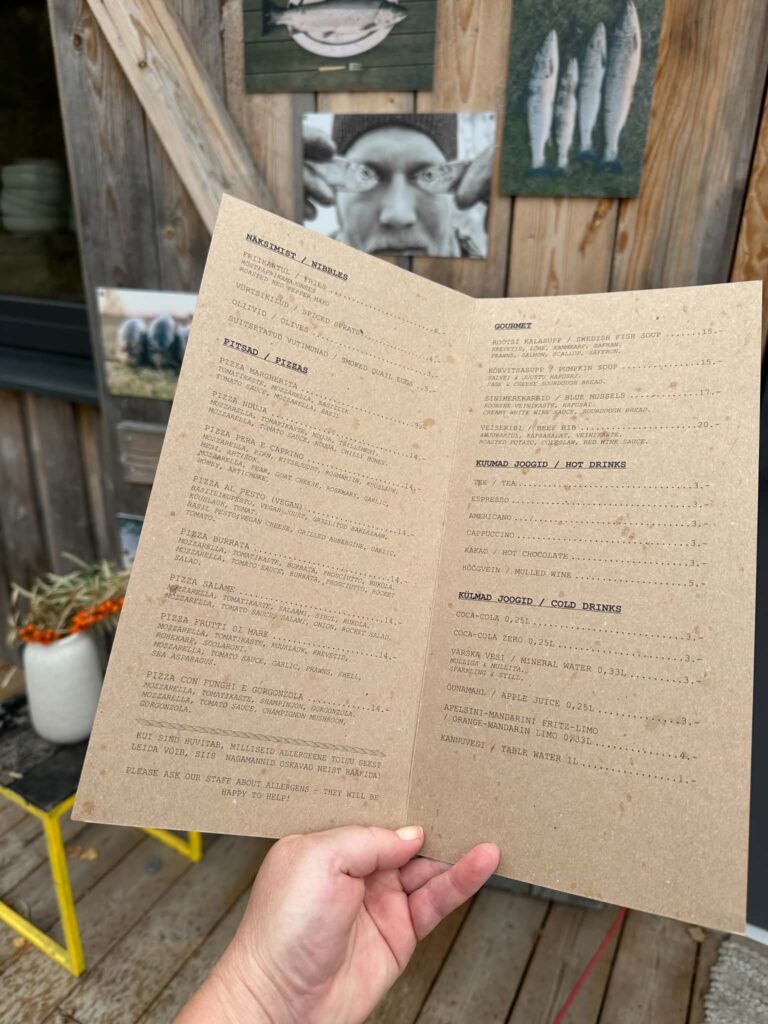 NÄKSIMIST / NIBBLES
FRIIKARTUL / FRIES ... 6.-
RÖSTPAPRIKAMAJONEES
ROASTED RED PEPPER MAYO
VÜRTSIKILUD / SPICED SPRATS ... 4.-
OLIIVID / OLIVES
SUITSETATUD VUTIMUNAD / SMOKED QUAIL EGGS ... 5.-
PITSAD / PIZZAS
PIZZA MARGHERITA ... 9.-
TOMATIKASTE, MOZZARELLA, BASIILIK
TOMATO SAUCE, MOZZARELLA, BASIL
PIZZA NDUJA ... 14.-
MOZZARELLA, TOMATIKASTE, NDUJA, TŠILLIMESI.
MOZZARELLA, TOMATO SAUCE, NDUJA, CHILLY HONEY.
PIZZA PERA E CAPRINO ... 14.-
MOZZARELLA, PIRN, KITSEJUUST, ROSMARIIN, KÜÜSLAUK,
MESI, ARTIŠOK.
MOZZARELLA, PEAR, GOAT CHEESE, ROSEMARY, GARLIC,
HONEY, ARTICHOKE.
PIZZA AL PESTO (VEGAN) ... 14.-
BASIILIKUPESTO, VEGAN JUUST, GRILLITUD BAKLAŽAAN,
KÜÜSLAUK, TOMAT.
BASIL PESTO, VEGAN CHEESE, GRILLED AUBERGINE, GARLIC,
TOMATO.
PIZZA BURRATA ... 14.-
MOZZARELLA, TOMATIKASTE, BURRATA, PROSCIUTTO, RUKOLA
MOZZARELLA, TOMATO SAUCE, BURRATA, PROSCIUTTO, ROCKET
SALAD.
PIZZA SALAME ... 14.-
MOZZARELLA, TOMATIKASTE, SALAAMI, SIBUL, RUKOLA.
MOZZARELLA, TOMATO SAUCE, SALAMI, ONION, ROCKET SALAD.
PIZZA FRUTTI DI MARE ... 14.-
MOZZARELLA, TOMATIKASTE, KÜÜSLAUK, KREVETID,
ROHEKARP, SOOLAROHI.
MOZZARELLA, TOMATO SAUCE, GARLIC, PRAWNS, SHELL,
SEA ASPARAGUS.
PIZZA CON FUNGHI E GORGONZOLA ... 14.-
MOZZARELLA, TOMATIKASTE, ŠAMPINJON, GORGONZOLA.
MOZZARELLA, TOMATO SAUCE, CHAMPIGNON MUSHROOM,
GORGONZOLA.
KUI SIND HUVITAB, MILLISEID ALLERGEENE TOIDU SEEST
LEIDA VÕIB, SIIS NAGAMANNID OSKAVAD NEIST RÄÄKIDA!
PLEASE ASK OUR STAFF ABOUT ALLERGENS - THEY WILL BE
HAPPY TO HELP!
GOURMET
ROOTSI KALASUPP / SWEDISH FISH SOUP ... 15.-
KREVETID, LÕHE, KAMMKARP, SAFRAN.
PRAWNS, SALMON, SCALLOP, SAFFRON.
KÕRVITSASUPP / PUMPKIN SOUP ... 15.-
SALVEI & JUUSTU HAPUSAI.
SAGE & CHEESE SOURDOUGH BREAD.
SINIMEREKARBID / BLUE MUSSELS ... 17.-
KOORENE VEINIKASTE, HAPUSAI.
CREAMY WHITE WINE SAUCE, SOURDOUGH BREAD.
VEISERIBI / BEEF RIB ... 20.-
AHJUKARTUL, KAPSASALAT, VEINIKASTE.
ROASTED POTATO, COLESLAW, RED WINE SAUCE.
KUUMAD JOOGID / HOT DRINKS
TEE / TEA ... 3.-
ESPRESSO ... 3.-
AMERICANO ... 3.-
CAPPUCCINO ... 3.-
KAKAO / HOT CHOCOLATE ... 3.-
HÕÕGVEIN / MULLED WINE ... 5.-
KÜLMAD JOOGID / COLD DRINKS
COCA-COLA 0,25L ... 3.-
COCA-COLA ZERO 0,25L ... 3.-
VÄRSKA VESI / MINERAL WATER 0,33L ... 3.-
MULLIGA & MULLITA.
SPARKLING & STILL.
ÕUNAMAHL / APPLE JUICE 0,25L ... 3.-
APELSINI-MANDARIINI FRITZ-LIMO
/ ORANGE-MANDARIN LIMO 0,33L ... 4.-
KANNUVESI / TABLE WATER 1L ... 1.-